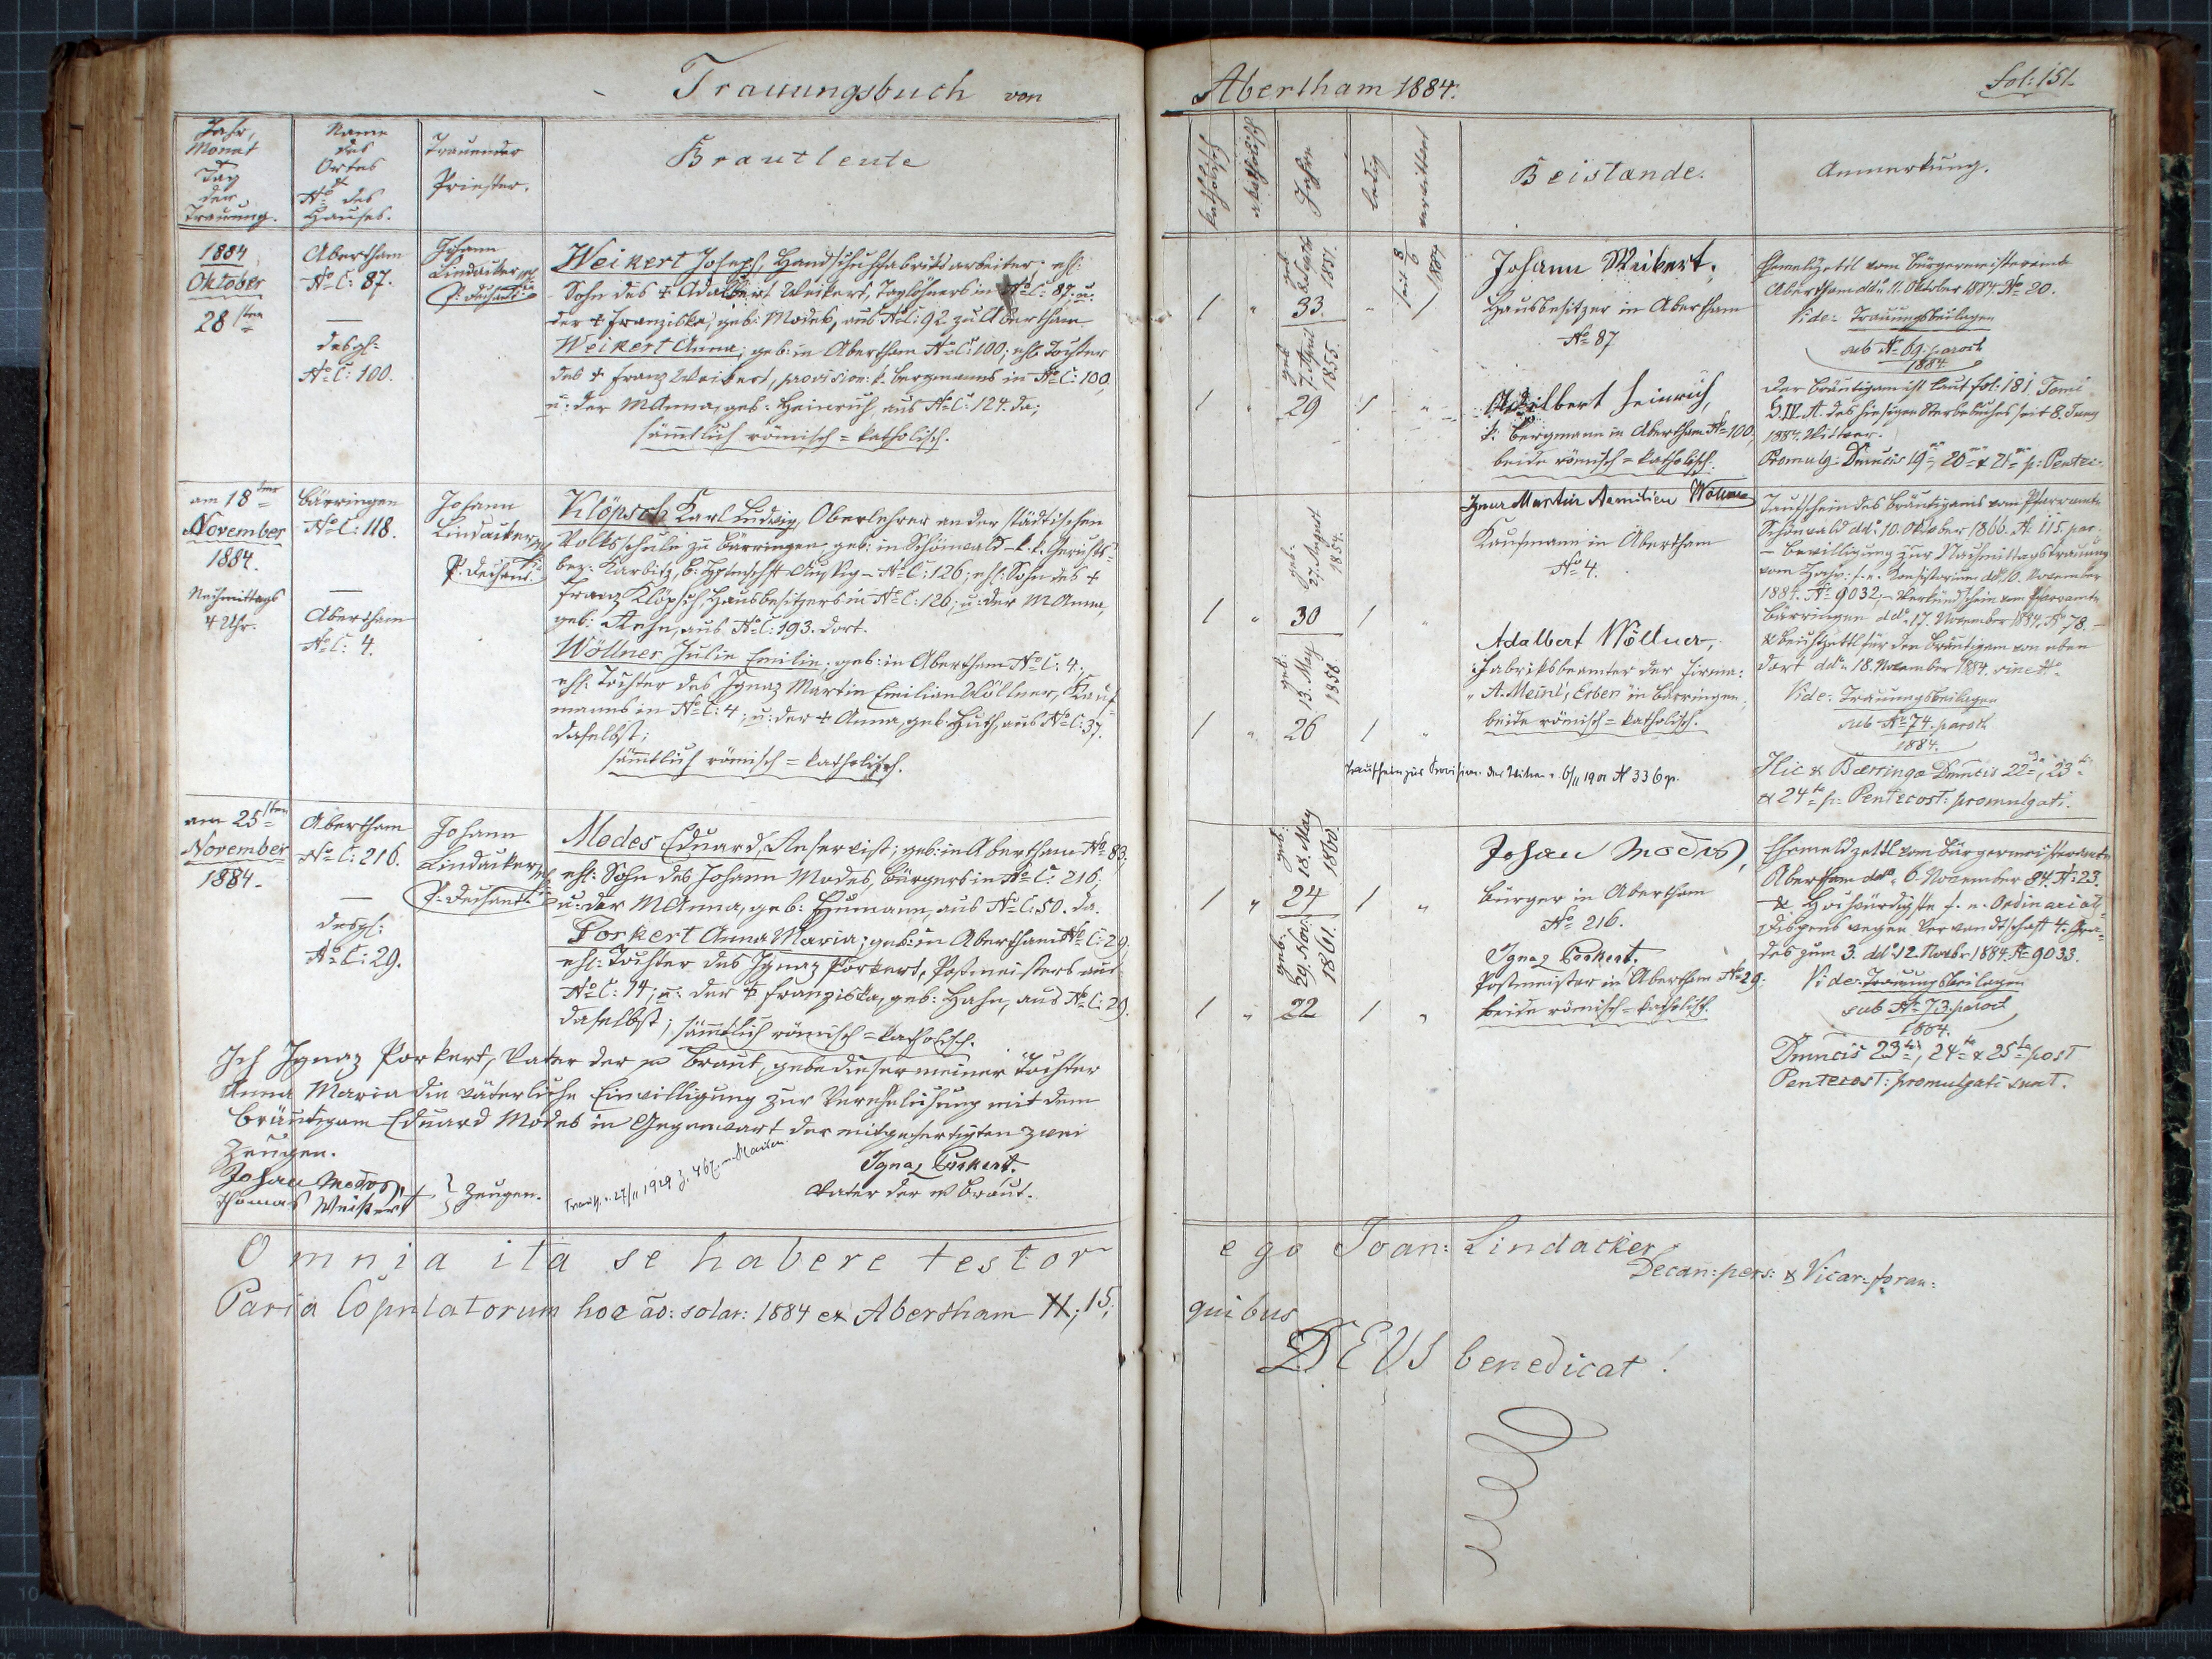 Trauungsbuch von
Abertham 1884.
fol: 151.
Jahr,
Monat
Tag
der
Trauung.
Name
des
Ortes
&
No des
Hauses.
Trauender
Priester.
Brautleute
katholisch
akatholisch
Jahre
ledig
verwittwet
Beistände.
Anmerkung.
1884
Oktober
28sten
Abertham
No C: 87.
—
desgl:
No C: 100.
Johann
Lindacker
P: Dechant.
Weikert Joseph, Handschuhfabriksarbeiter, ehl:
Sohn des † Adalbert Weikert, Taglöhners in No C: 87. u.
der † Franziska, geb: Modes, aus No C: 92 zu Abertham
Weikert Anna, geb: in Abertham No C: 100; ehl: Tochter
des † Franz Weikert, provision: k. Bergmanns in No C: 100,
u: der M Anna, geb: Heinrich, aus No C: 124. da;
sämmtlich römisch=katholisch.
1 " 33. "
1881.
seit 8/6 1884
geb 7. April 1855.
1 " 29 1 "
Johann Weikert,
Hausbesitzer in Abertham
No 87
Adalbert Heinrich,
k: Bergmann in Abertham No 100,
beide römisch=katholisch.
Ehemeldzettl vom Bürgermeisteramte
Abertham ddo 11. Oktober 1884. No 20.
Vide: Trauungsbeilagen
sub No 69. paroch
1884.
Der Bräutigam ist laut fol: 181 Tomi
des hiesigen Sterbebuches seit 8. Juny
1884. Wittwer.
Promulg: Dmncis 19na, 20ma & 21ma p: Pentec.
am 18ten
November
1884.
Nachmittags
4 Uhr.
Bärringen
No C: 118.
—
Abertham
No C: 4.
Johann
Lindacker
P. Dechant.
Klöpsch Karl Ludwig, Oberlehrer an der städtischen
Volksschule zu Bärringen, geb: in Schönwald – k. k. Gerichts=
bez: Karbitz, b: Hptmschft Aussig – No C: 126; ehl: Sohn des †
Franz Klöpsch, Hausbesitzers in No C: 126; u: der M Anna,
geb: Rehn, aus No C: 193. dort.
Wöllner Julie Emilie, geb: in Abertham No C: 4.,
ehl: Tochter des Ignaz Martin Emilian Wöllner, Kauf=
manns in No C: 4; u: der † Anna, geb: Huth aus No C: 37.
daselbst;
sämmtlich römisch=katholisch.
geb: 27. August 1854.
1 " 30 1 "
geb: 13. May 1858.
1 " 26 1 "
Ignaz Martin Aemilian Wöllner
Kaufmann in Abertham
No 4.
Adalbert Wöllner,
Fabriksbeamter der Firma:
"A. Meinl, Erben" in Bärringen;
beide römisch=katholisch.
Taufschein des Bräutigams vom Pfarramte
Schönwald ddo 10. Oktober 1866. No 115 par.
– Bewilligung zur Nachmittagstrauung
vom Hochw: f. e. Konsistorium ddo 10. November
1884. No 9032; – Verkündschein vom Pfarramte
Bärringen ddo 17. November 1884. No 78. –
& Beichtzettl für den Bräutigam von eben
dort ddo 18. November 1884. sine No
Vide: Trauungsbeilagen
sub No 74. paroch
1884.
Hic & Bärringa Dmncis 22da, 23tia
& 24ta p: Pentecost: promulgati.
Trauschein zur Provision der Witwe v. 6/11 1901 N 336 p.
am 25sten
November
1884.
Abertham
No C: 216.
—
desgl:
No C: 29.
Johann
Lindacker
P. Dechant
Modes Eduard, Reservist; geb: in Abertham No 83,
ehl: Sohn des Johann Modes, Bürgers in No C: 216;
u: der M Anna, geb: Humann, aus No C: 50. da.
Porkert Anna Maria; geb: in Abertham No C: 29.
ehl: Tochter des Ignaz Porkert, Postmeisters aus
No C: 14; u: der † Franziska, geb: Hahn, aus No C: 29.
daselbst; sämmtlich römisch=katholisch.
geb: 18. May 1860.
1 " 24 1 "
geb: 29. Nov: 1861.
1 " 22 1 "
Johan Modes,
Bürger in Abertham
No 216.
Ignaz Porkert.
Postmeister in Abertham No 29.
beide römisch=katholisch.
Ehemeldzettl vom Bürgermeisteramte
Abertham ddo 6. November 84. No 23.
& Hochwürdigste f. e. Ordinariats
dispens wegen Verwandtschaft 4. Gra=
des zum 3. ddo 12. Novbr 1884. No 9033.
Vide: Trauungsbeilagen
sub No 73. paroch
1884.
Dmncis 23tia, 24ta & 25ta post
Pentecost: promulgati sunt.
Ich Ignaz Porkert, Vater der Braut, gebe dieser meiner Tochter
Anna Maria die väterliche Einwilligung zur Verehelichung mit dem
Bräutigam Eduard Modes in Gegenwart der mitgefertigten zwei
Zeugen.
Johan Modes,
Thomas Weikert } Zeugen.
27/11 1929
Ignaz Porkert.
Vater der Braut.
Omnia ita se habere testor
ego Joan: Lindacker,
Decan: pers: & Vicar: foran:
Paria Copulatorum hoc ao: solar: 1884 ex Abertham 15;
quibus
DEUS benedicat!